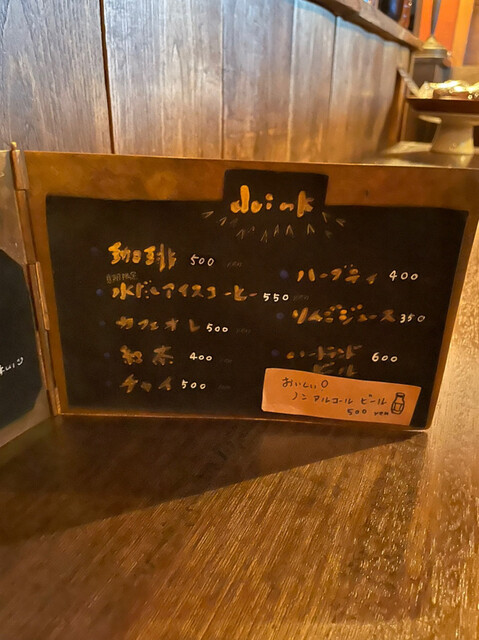 drink
珈琲 500 yen
水だしアイスコーヒー 550
カフェオレ 500 yen
紅茶 400 yen
チャイ 500 yen
ハーブティ 400
りんごジュース 350
ハートランド 600
ビール
おいしい
ノンアルコール ビール
500 yen